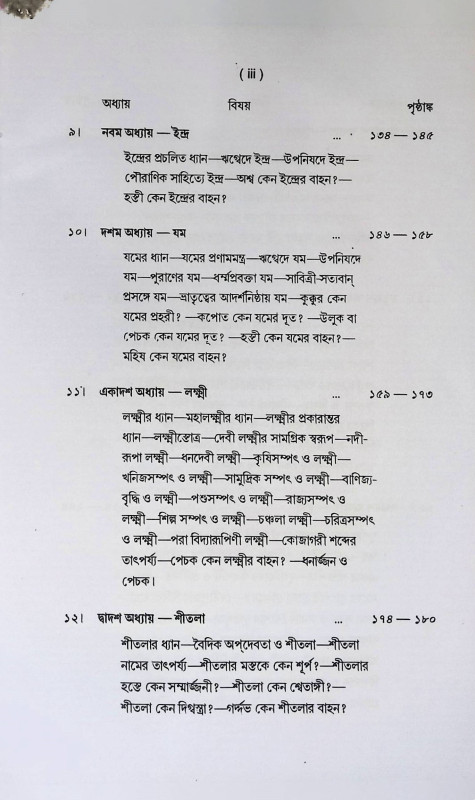 ( iii )
অধ্যায় বিষয় পৃষ্ঠাঙ্ক
৯। নবম অধ্যায় — ইন্দ্র ... ১৩৪ — ১৪৫
ইন্দ্রের প্রচলিত ধ্যান—ঋগ্বেদে ইন্দ্র—উপনিষদে ইন্দ্র—
পৌরাণিক সাহিত্যে ইন্দ্র—অশ্ব কেন ইন্দ্রের বাহন?—
হস্তী কেন ইন্দ্রের বাহন?
১০। দশম অধ্যায় — যম ... ১৪৬ — ১৫৮
যমের ধ্যান—যমের প্রণামমন্ত্র—ঋগ্বেদে যম—উপনিষদে
যম—পুরাণের যম—ধর্ম্মপ্রবক্তা যম—সাবিত্রী-সত্যবান্
প্রসঙ্গে যম—ভ্রাতৃত্বের আদর্শনিষ্ঠায় যম—কুক্কুর কেন
যমের প্রহরী? —কপোত কেন যমের দূত? —উলূক বা
পেচক কেন যমের দূত? —হস্তী কেন যমের বাহন?—
মহিষ কেন যমের বাহন?
১১। একাদশ অধ্যায় — লক্ষ্মী ... ১৫৯ — ১৭৩
লক্ষ্মীর ধ্যান—মহালক্ষ্মীর ধ্যান—লক্ষ্মীর প্রকারান্তর
ধ্যান—লক্ষ্মীস্তোত্র—দেবী লক্ষ্মীর সামগ্রিক স্বরূপ—নদী-
রূপা লক্ষ্মী—ধনদেবী লক্ষ্মী—কৃষিসম্পৎ ও লক্ষ্মী—
খনিজসম্পৎ ও লক্ষ্মী—সামুদ্রিক সম্পৎ ও লক্ষ্মী—বাণিজ্য-
বৃদ্ধি ও লক্ষ্মী—পশুসম্পৎ ও লক্ষ্মী—রাজ্যসম্পৎ ও
লক্ষ্মী—শিল্প সম্পৎ ও লক্ষ্মী—চঞ্চলা লক্ষ্মী—চরিত্রসম্পৎ
ও লক্ষ্মী—পরা বিদ্যারূপিণী লক্ষ্মী—কোজাগরী শব্দের
তাৎপর্য্য—পেচক কেন লক্ষ্মীর বাহন? —ধনার্জ্জন ও
পেচক।
১২। দ্বাদশ অধ্যায় — শীতলা ... ১৭৪ — ১৮০
শীতলার ধ্যান—বৈদিক অপ্‌দেবতা ও শীতলা—শীতলা
নামের তাৎপর্য্য—শীতলার মস্তকে কেন শূর্প?—শীতলার
হস্তে কেন সম্মার্জ্জনী?—শীতলা কেন শ্বেতাঙ্গী?—
শীতলা কেন দিগ্বস্ত্রা?—গর্দ্দভ কেন শীতলার বাহন?